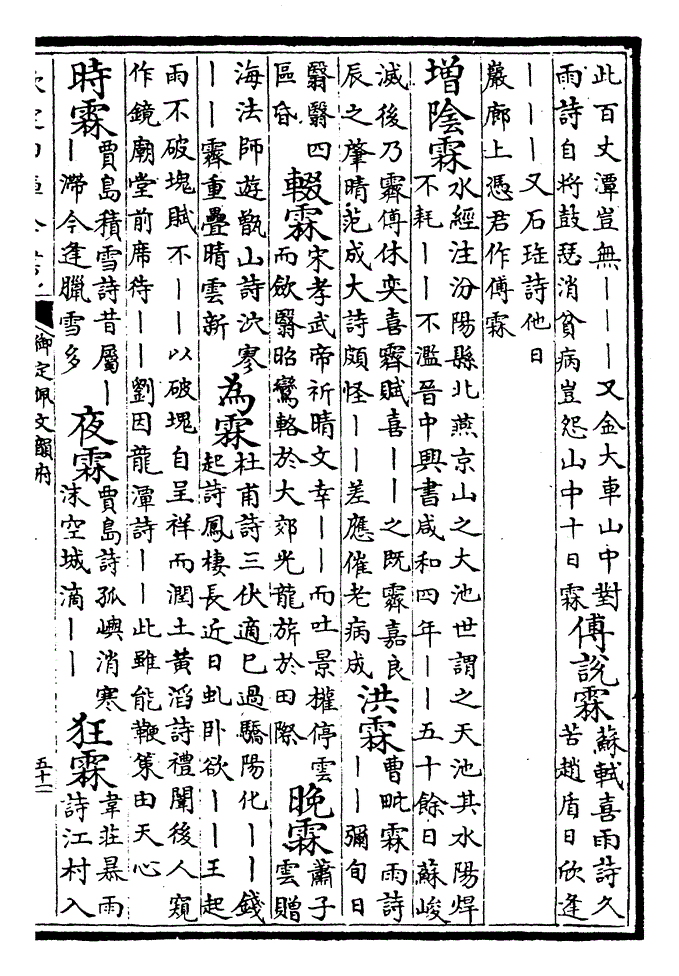 此百丈潭豈無丨丨丨又金大車山中對
雨詩自將鼓瑟消貧病豈怨山中十日霖
傅說霖
蘇軾喜雨詩久
苦趙盾日欣逢
丨丨丨又石珤詩他日
巖廊上憑君作傅霖
增陰霖
水經注汾陽縣北燕京山之大池世謂之天池其水陽焊
不耗丨丨不濫晉中興書咸和四年丨丨五十餘日蘇峻
滅後乃霽傅休奕喜霽賦喜丨丨之既霽嘉良
辰之肇晴范成大詩頗怪丨丨差應催老病成
洪霖
曹毗霖雨詩
丨丨彌旬日
翳翳四
區昏
輟霖
宋孝武帝祈晴文幸丨丨而吐景權停雲
而歛翳昭鸞輅於大郊光龍旂於田際
晚霖
蕭子
雲贈
海法師遊甑山詩泬寥
丨丨霽重疊晴雲新
為霖
杜甫詩三伏適已過驕陽化丨丨錢
起詩鳳棲長近日虬卧欲丨丨王起
雨不破塊賦不丨丨以破塊自呈祥而潤土黃滔詩禮闈後人窺
作鏡廟堂前席待丨丨劉因龍潭詩丨丨此雖能鞭策由天心
時霖
賈島積雪詩昔屬丨
丨滯今逢臘雪多
夜霖
賈島詩孤嶼消寒
沫空城滴丨丨
狂霖
韋莊暴雨
詩江村入
御定佩文韻府